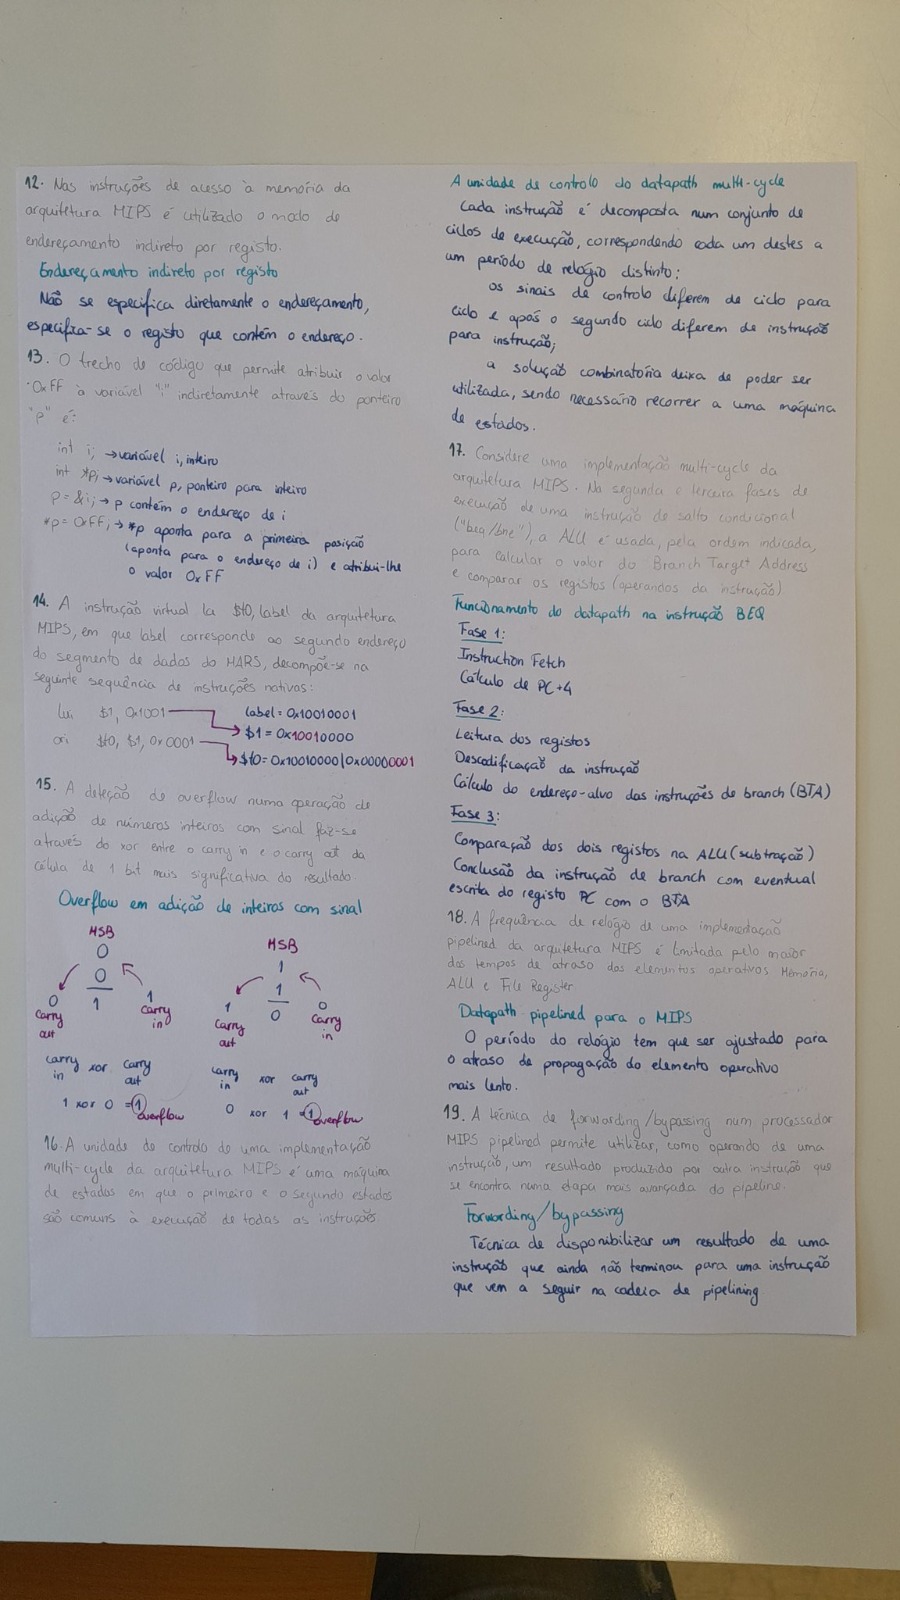 12. Nas instruções de acesso à memória da
arquitetura MIPS é utilizado o modo de
endereçamento indireto por registo.
Endereçamento indireto por registo
Não se especifica diretamente o endereçamento,
especifica-se o registo que contém o endereço.
13. O trecho de código que permite atribuir o valor
0xFF à variável "i" indiretamente através do ponteiro
"p" é:
int i; → variável i, inteiro
int *p; → variável p, ponteiro para inteiro
p = &i; → p contém o endereço de i
*p = 0xFF; → *p aponta para a primeira posição
(aponta para o endereço de i) e atribui-lhe
o valor 0xFF
14. A instrução virtual la $t0, label da arquitetura
MIPS, em que label corresponde ao segundo endereço
do segmento de dados do MARS, decompõe-se na
seguinte sequência de instruções nativas:
lui $1, 0x1001 label = 0x10010001
$1 = 0x10010000
ori $t0, $1, 0x0001
$t0 = 0x10010000 | 0x00000001
15. A deteção de overflow numa operação de
adição de números inteiros com sinal faz-se
através do xor entre o carry in e o carry out da
célula de 1 bit mais significativa do resultado.
Overflow em adição de inteiros com sinal
MSB
0
0
1
0
carry
out
1
carry
in
carry xor carry
in out
1 xor 0 = 1 overflow
MSB
1
1
0
1
carry
out
0
carry
in
carry xor carry
in out
0 xor 1 = 1 overflow
16. A unidade de controlo de uma implementação
multi-cycle da arquitetura MIPS é uma máquina
de estados em que o primeiro e o segundo estados
são comuns à execução de todas as instruções
A unidade de controlo do datapath multi-cycle
Cada instrução é decomposta num conjunto de
ciclos de execução, correspondendo cada um destes a
um período de relógio distinto:
os sinais de controlo diferem de ciclo para
ciclo e após o segundo ciclo diferem de instrução
para instrução;
a solução combinatória deixa de poder ser
utilizada, sendo necessário recorrer a uma máquina
de estados.
17. Considere uma implementação multi-cycle da
arquitetura MIPS. Na segunda e terceira fases de
execução de uma instrução de salto condicional
("beq/bne"), a ALU é usada, pela ordem indicada,
para calcular o valor do Branch Target Address
e comparar os registos (operandos da instrução)
Funcionamento do datapath na instrução BEQ
Fase 1:
Instruction Fetch
Cálculo de PC+4
Fase 2:
Leitura dos registos
Descodificação da instrução
Cálculo do endereço-alvo das instruções de branch (BTA)
Fase 3:
Comparação dos dois registos na ALU (subtração)
Conclusão da instrução de branch com eventual
escrita do registo PC com o BTA
18. A frequência de relógio de uma implementação
pipelined da arquitetura MIPS é limitada pelo maior
dos tempos de atraso dos elementos operativos Memória,
ALU e File Register
Datapath pipelined para o MIPS
O período do relógio tem que ser ajustado para
o atraso de propagação do elemento operativo
mais lento.
19. A técnica de forwarding/bypassing num processador
MIPS pipelined permite utilizar, como operando de uma
instrução, um resultado produzido por outra instrução que
se encontra numa etapa mais avançada do pipeline.
Forwarding/bypassing
Técnica de disponibilizar um resultado de uma
instrução que ainda não terminou para uma instrução
que vem a seguir na cadeia de pipelining